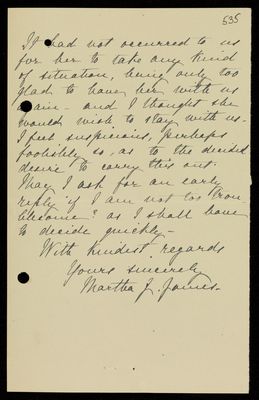 535
It had not occurred to us
for her to take any kind
of situation, being only too
glad to have her with us
again - and I thought she
would wish to stay with us.
I feel suspicious, perhaps
foolishly so, as to the decided
desire to carry this out.
May I ask for an early
reply "if I am not too trou
blesome"? as I shall have
to decide quickly -
With kindest regards
Yours sincerely
Martha J. James.